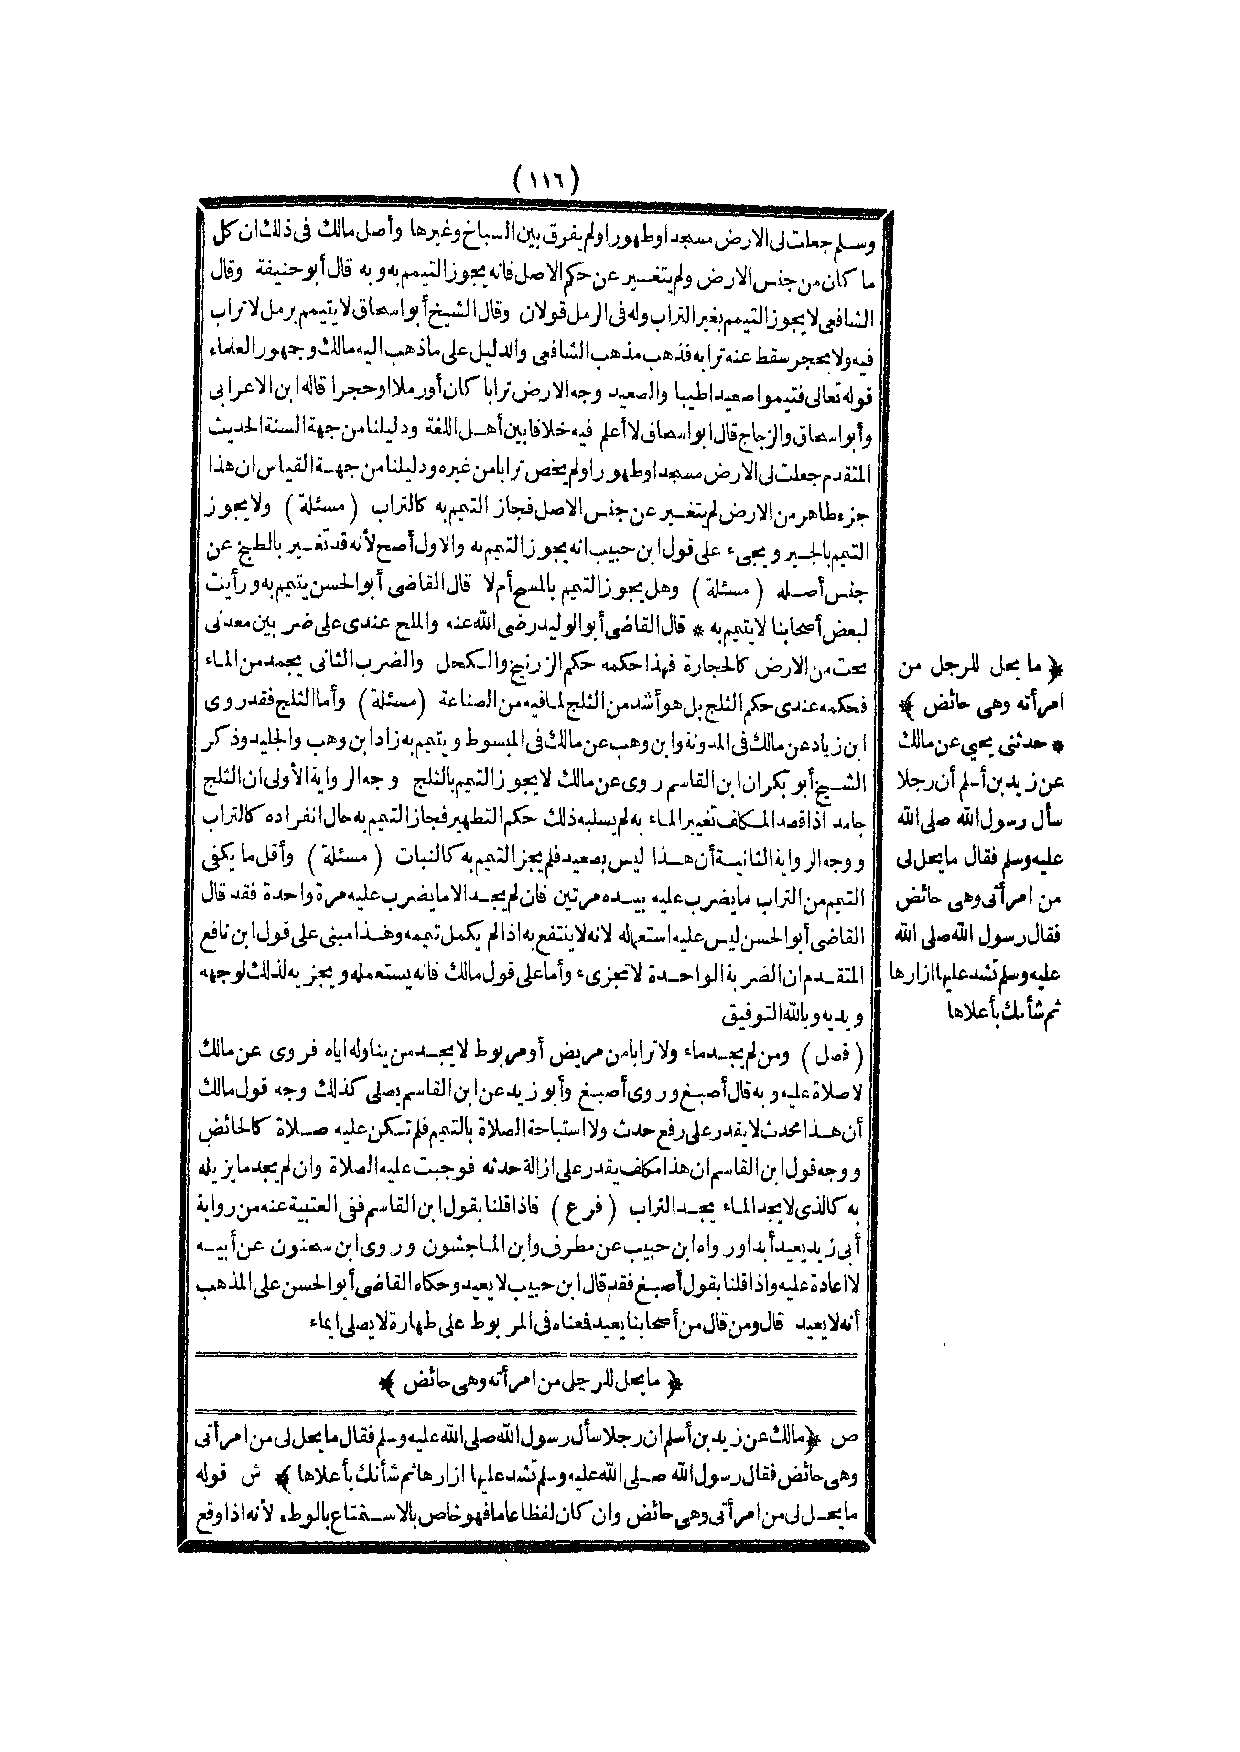 (١١٦)
وسلم جعلت لى الارض مسجدا وطهورا ولم يفرق بين السباخ وغيرها وأصل مالك فى ذلك ان كل
ما كان من جنس الارض ولم يتغير عن حكم الاصل فانه يجوز التيمم به وبه قال أبو حنيفة وقال
الشافعى لا يجوز التيمم بغير التراب وله فى الرمل قولان وقال الشيخ أبو اسحاق لا يتيمم برمل لا تراب
فيه ولا بحجر سقط عنه ترابه فذهب مذهب الشافعى والدليل على ما ذهب اليه مالك وجمهور العلماء
قوله تعالى فتيمموا صعيدا طيبا والصعيد وجه الارض ترابا كان أو رملا أو حجرا قاله ابن الاعرابى
وأبو اسحاق والزجاج قال ابو اسحاق لا أعلم فيه خلافا بين أهل اللغة ودليلنا من جهة السنة الحديث
المتقدم جعلت لى الارض مسجدا وطهورا ولم يخص ترابا من غيره ودليلنا من جهة القياس ان هذا
جزء طاهر من الارض لم يتغير عن جنس الاصل فجاز التيمم به كالتراب (مسئلة) ولا يجوز
التيمم بالجير ويجىء على قول ابن حبيب انه يجوز التيمم به والاول أصح لأنه قد تغير بالطبخ عن
جنس أصله (مسئلة) وهل يجوز التيمم بالملح أم لا قال القاضى أبو الحسن يتيمم به ورأيت
لبعض أصحابنا لا يتيمم به * قال القاضى أبو الوليد رضى الله عنه والملح عندى على ضربين معدنى
بحت من الارض كالحجارة فهذا حكمه حكم الزرنيخ والكحل والضرب الثانى يجمد من الماء
فحكمه عندى حكم الثلج بل هو أشد من الثلج لما فيه من الصناعة (مسئلة) وأما الثلج فقد روى
ابن زياد عن مالك فى المدونة وابن وهب عن مالك فى المبسوط ويتيمم به زاد ابن وهب والجليد وذكر
الشيخ أبو بكر ان ابن القاسم روى عن مالك لا يجوز التيمم بالثلج وجه الرواية الأولى ان الثلج
جامد اذا قصد المكلف تغيير الماء به لم يسلبه ذلك حكم التطهير فجاز التيمم به حال انفراده كالتراب
ووجه الرواية الثانية أن هذا ليس بصعيد فلم يجز التيمم به كالنبات (مسئلة) وأقل ما يكفى
التيمم من التراب ما يضرب عليه بيده مرتين فان لم يجد الا ما يضرب عليه مرة واحدة فقد قال
القاضى أبو الحسن ليس عليه استعماله لانه لا ينتفع به اذا لم يكمل تيممه وهذا مبنى على قول ابن نافع
المتقدم ان الضربة الواحدة لا تجزىء وأما على قول مالك فانه يستعمله ويجزيه لذلك لوجهه
ويديه وبالله التوفيق
(فصل) ومن لم يجد ماء ولا ترابا من مريض أو مربوط لا يجد من يناوله اياه فروى عن مالك
لا صلاة عليه وبه قال أصبغ وروى أصبغ وأبو زيد عن ابن القاسم يصلى كذلك وجه قول مالك
أن هذا محدث لا يقدر على رفع حدث ولا استباحة الصلاة بالتيمم فلم تكن عليه صلاة كالحائض
ووجه قول ابن القاسم ان هذا مكلف يقدر على ازالة حدثه فوجبت عليه الصلاة وان لم يجد ما يزيله
به كالذى لا يجد الماء يجد التراب (فرع) فاذا قلنا بقول ابن القاسم ففى العتبية عنه من رواية
أبى زيد يعيد أبدا ورواه ابن حبيب عن مطرف وابن الماجشون وروى ابن سحنون عن أبيه
لا اعادة عليه واذا قلنا بقول أصبغ فقد قال ابن حبيب لا يعيد وحكاه القاضى أبو الحسن على المذهب
أنه لا يعيد قال ومن قال من أصحابنا يعيد فمعناه فى المربوط على طهارة لا يصلى ايماء
﴿ ما يحل للرجل من امرأته وهى حائض ﴾
ص ﴿ مالك عن زيد بن أسلم ان رجلا سأل رسول الله صلى الله عليه وسلم فقال ما يحل لى من امرأتى
وهى حائض فقال رسول الله صلى الله عليه وسلم تشد عليها ازارها ثم شأنك بأعلاها ﴾ ش قوله
ما يحل لى من امرأتى وهى حائض وان كان لفظا عاما فهو خاص بالاستمتاع بالوطء لأنه اذا وقع
﴿ ما يحل للرجل من
امرأته وهى حائض ﴾
* حدثنى يحيى عن مالك
عن زيد بن أسلم أن رجلا
سأل رسول الله صلى الله
عليه وسلم فقال ما يحل لى
من امرأتى وهى حائض
فقال رسول الله صلى الله
عليه وسلم تشد عليها ازارها
ثم شأنك بأعلاها